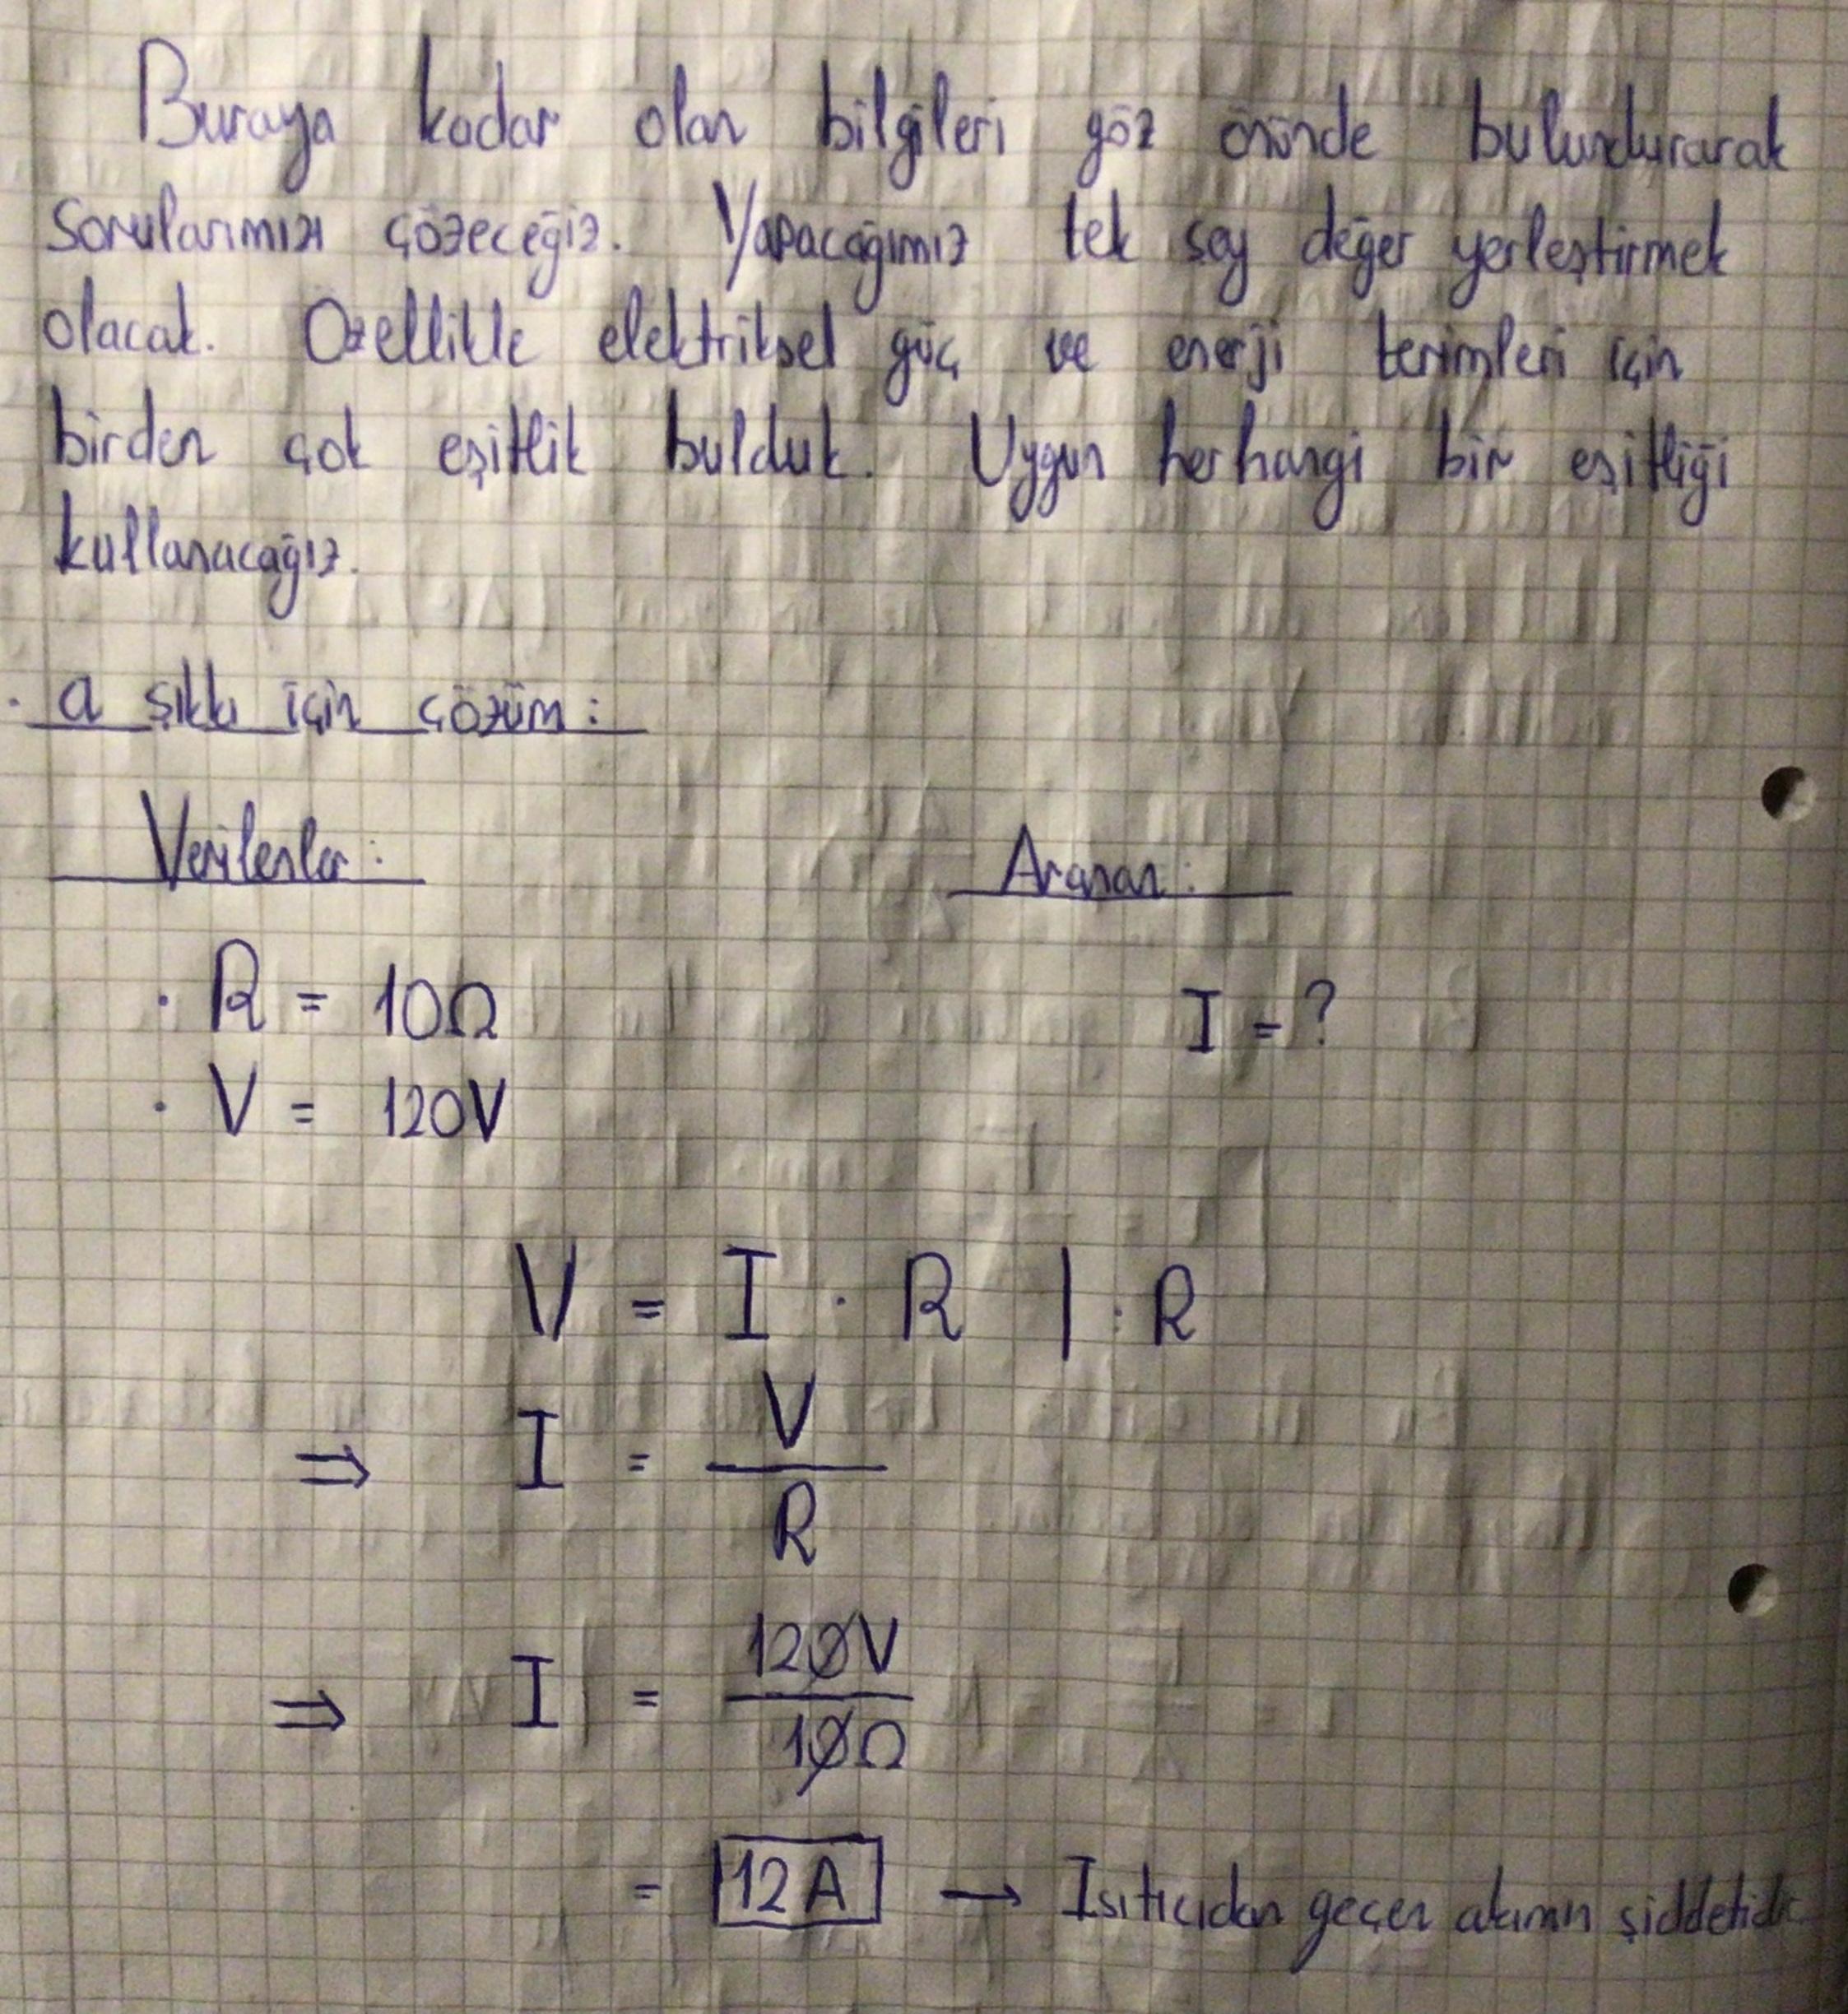 Buraya kadar olan bilgileri göz önünde bulundurarak
sorularımızı çözeceğiz. Yapacağımız tek şey değer yerleştirmek
olacak. Özellikle elektriksel güç ve enerji terimleri için
birden çok eşitlik bulduk. Uygun herhangi bir eşitliği
kullanacağız.
· a şıkkı için çözüm:
Verilenler: Aranan:
· R = 10Ω I = ?
· V = 120V
V = I · R | : R
⇒ I = V / R
⇒ I = 120V / 10Ω
= 12A → Isıtıcıdan geçen akımın şiddetidir